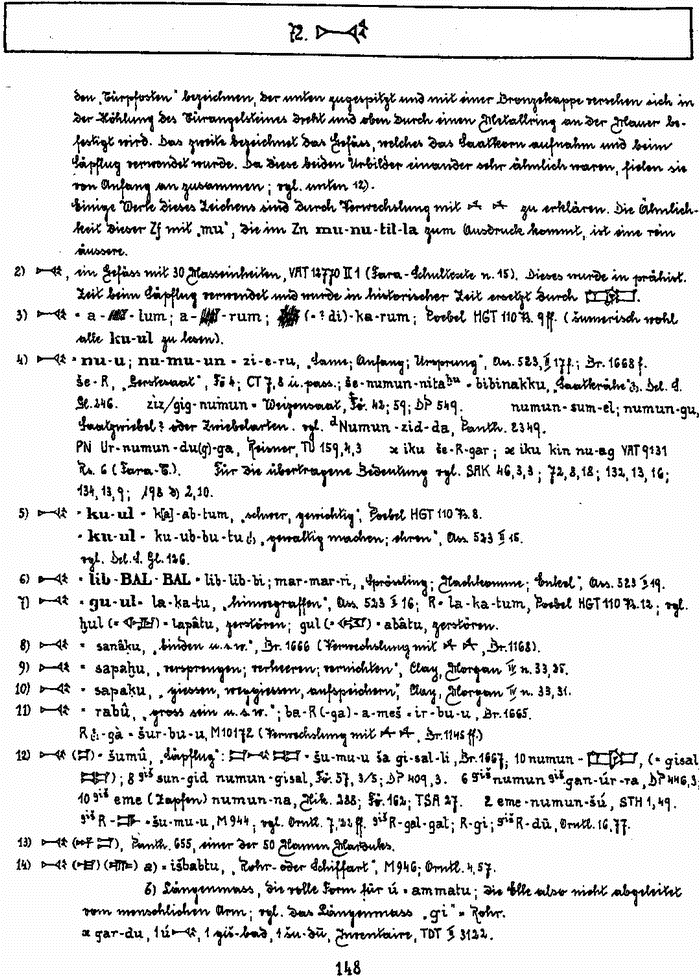 72.
den „Türpfosten“ bezeichnen, der unten zugespitzt und mit einer Bronzekappe versehen sich in
der Höhlung des Türangelsteines dreht und oben durch einen Metallring an der Mauer be-
festigt wird. Das zweite bezeichnet das Gefäss, welches das Saatkorn aufnahm und beim
Säpflug verwendet wurde. Da diese beiden Urbilder einander sehr ähnlich waren, fielen sie
von Anfang an zusammen; vgl. unten 12).
Einige Werte dieses Zeichens sind durch Verwechslung mit zu erklären. Die Ähnlich-
keit dieser Zf mit „mu“, die im Zn mu-nu-til-la zum Ausdruck kommt, ist eine rein
äussere.
2) , ein Gefäss mit 30 Masseinheiten, VAT 12770 II 1 (Fara-Schultexte n. 15). Dieses wurde in prähist.
Zeit beim Säpflug verwendet und wurde in historischer Zeit ersetzt durch .
3) = a- -lum; a- -rum; (-? di)-ka-rum; Poebel HGT 110 Rs. 9 ff. (sumerisch wohl
alle ku-ul zu lesen).
4) = nu-u; nu-mu-un = zi-e-ru, „Same; Anfang; Ursprung“, Ass. 523, II 17 f.; Br. 1668 f.
še-R, „Gerstesaat“, Fö 4; CT 7, 8 u. pass.; še-numun-nita hu = bibinakku, „Saatkrähe“ Del. S.
Gl. 246. ziz/gig-numun = Weizensaat, Fö. 42; 59; DP 549. numun-sum-el; numun-gu,
Saatzwiebel? oder Zwiebelarten. vgl. d Numun-zid-da, Panth. 2349.
PN Ur-numun-du(g)-ga, Reisner, TU 159, 4, 3 x iku še-R-gar; x iku kin nu-ag VAT 9131
Rs. 6 (Fara-T.). Für die übertragene Bedeutung vgl. SAK 46, 3, 3; 72, 8, 18; 132, 13, 16;
134, 13, 9; 198 d) 2, 10.
5) = ku-ul = k[a]-ab-tum, „schwer, gewichtig“, Poebel HGT 110 Rs. 8.
= ku-ul = ku-ub-bu-tu, „gewaltig machen; ehren“, Ass. 523 II 15.
vgl. Del. S. Gl. 126.
6) = lib-BAL-BAL = lib-lib-bi; mar-mar-ri, „Sprössling; Nachkomme; Enkel“, Ass. 523 I 19.
7) = gu-ul = la-ka-tu, „hinwegraffen“, Ass. 523 II 16; R = la-ka-tum, Poebel HGT 110 Rs. 12; vgl.
ḫul (= ) = lapâtu, zerstören; gul (= ) = abâtu, zerstören.
8) = sanâku, „binden u.s.w.“, Br. 1666 (Verwechslung mit , Br. 1168).
9) = sapaḫu, „versprengen; verheeren; vernichten“, Clay, Morgan IV n. 33, 35.
10) = sapaku, „giessen, weggiessen, aufspeichern“, Clay, Morgan IV n. 33, 31.
11) = rabû, „gross sein u.s.w.“; ba-R(-ga)-a-meš = ir-bu-u, Br. 1665.
R -gà = šur-bu-u, M 10172 (Verwechslung mit , Br. 1145 ff.)
12) ( ) = šumû, „Säpflug“: = šu-mu-u ša gi-sal-li, Br. 1667; 10 numun- , (= gisal
); 8 giš sun-gid numun-gisal, Fö. 57, 3/5; DP 409, 3. 6 giš numun giš gan-úr-ra, DP 446, 3;
10 giš eme (Zapfen) numun-na, Nik. 288; Fö. 162; TSA 27. 2 eme-numun-šú, STH 1, 49.
giš R- = šu-mu-u, M 944; vgl. Orntl. 7, 22 ff. giš R-gal-gal; R-gi; giš R-dū, Orntl. 16, 77.
13) ( ), Panth. 655, einer der 50 Namen Marduks.
14) ( ) ( ) a) = išbabtu, „Rohr- oder Schiffart“, M 946; Orntl. 4, 57.
b) Längenmass, die volle Form für ú = ammatu; die Elle also nicht abgeleitet
vom menschlichen Arm; vgl. das Längenmass „gi“ = Rohr.
x gar-du, 1 ú , 1 giš-bad, 1 šu-dū, Inventaire, TDT II 3122.
148